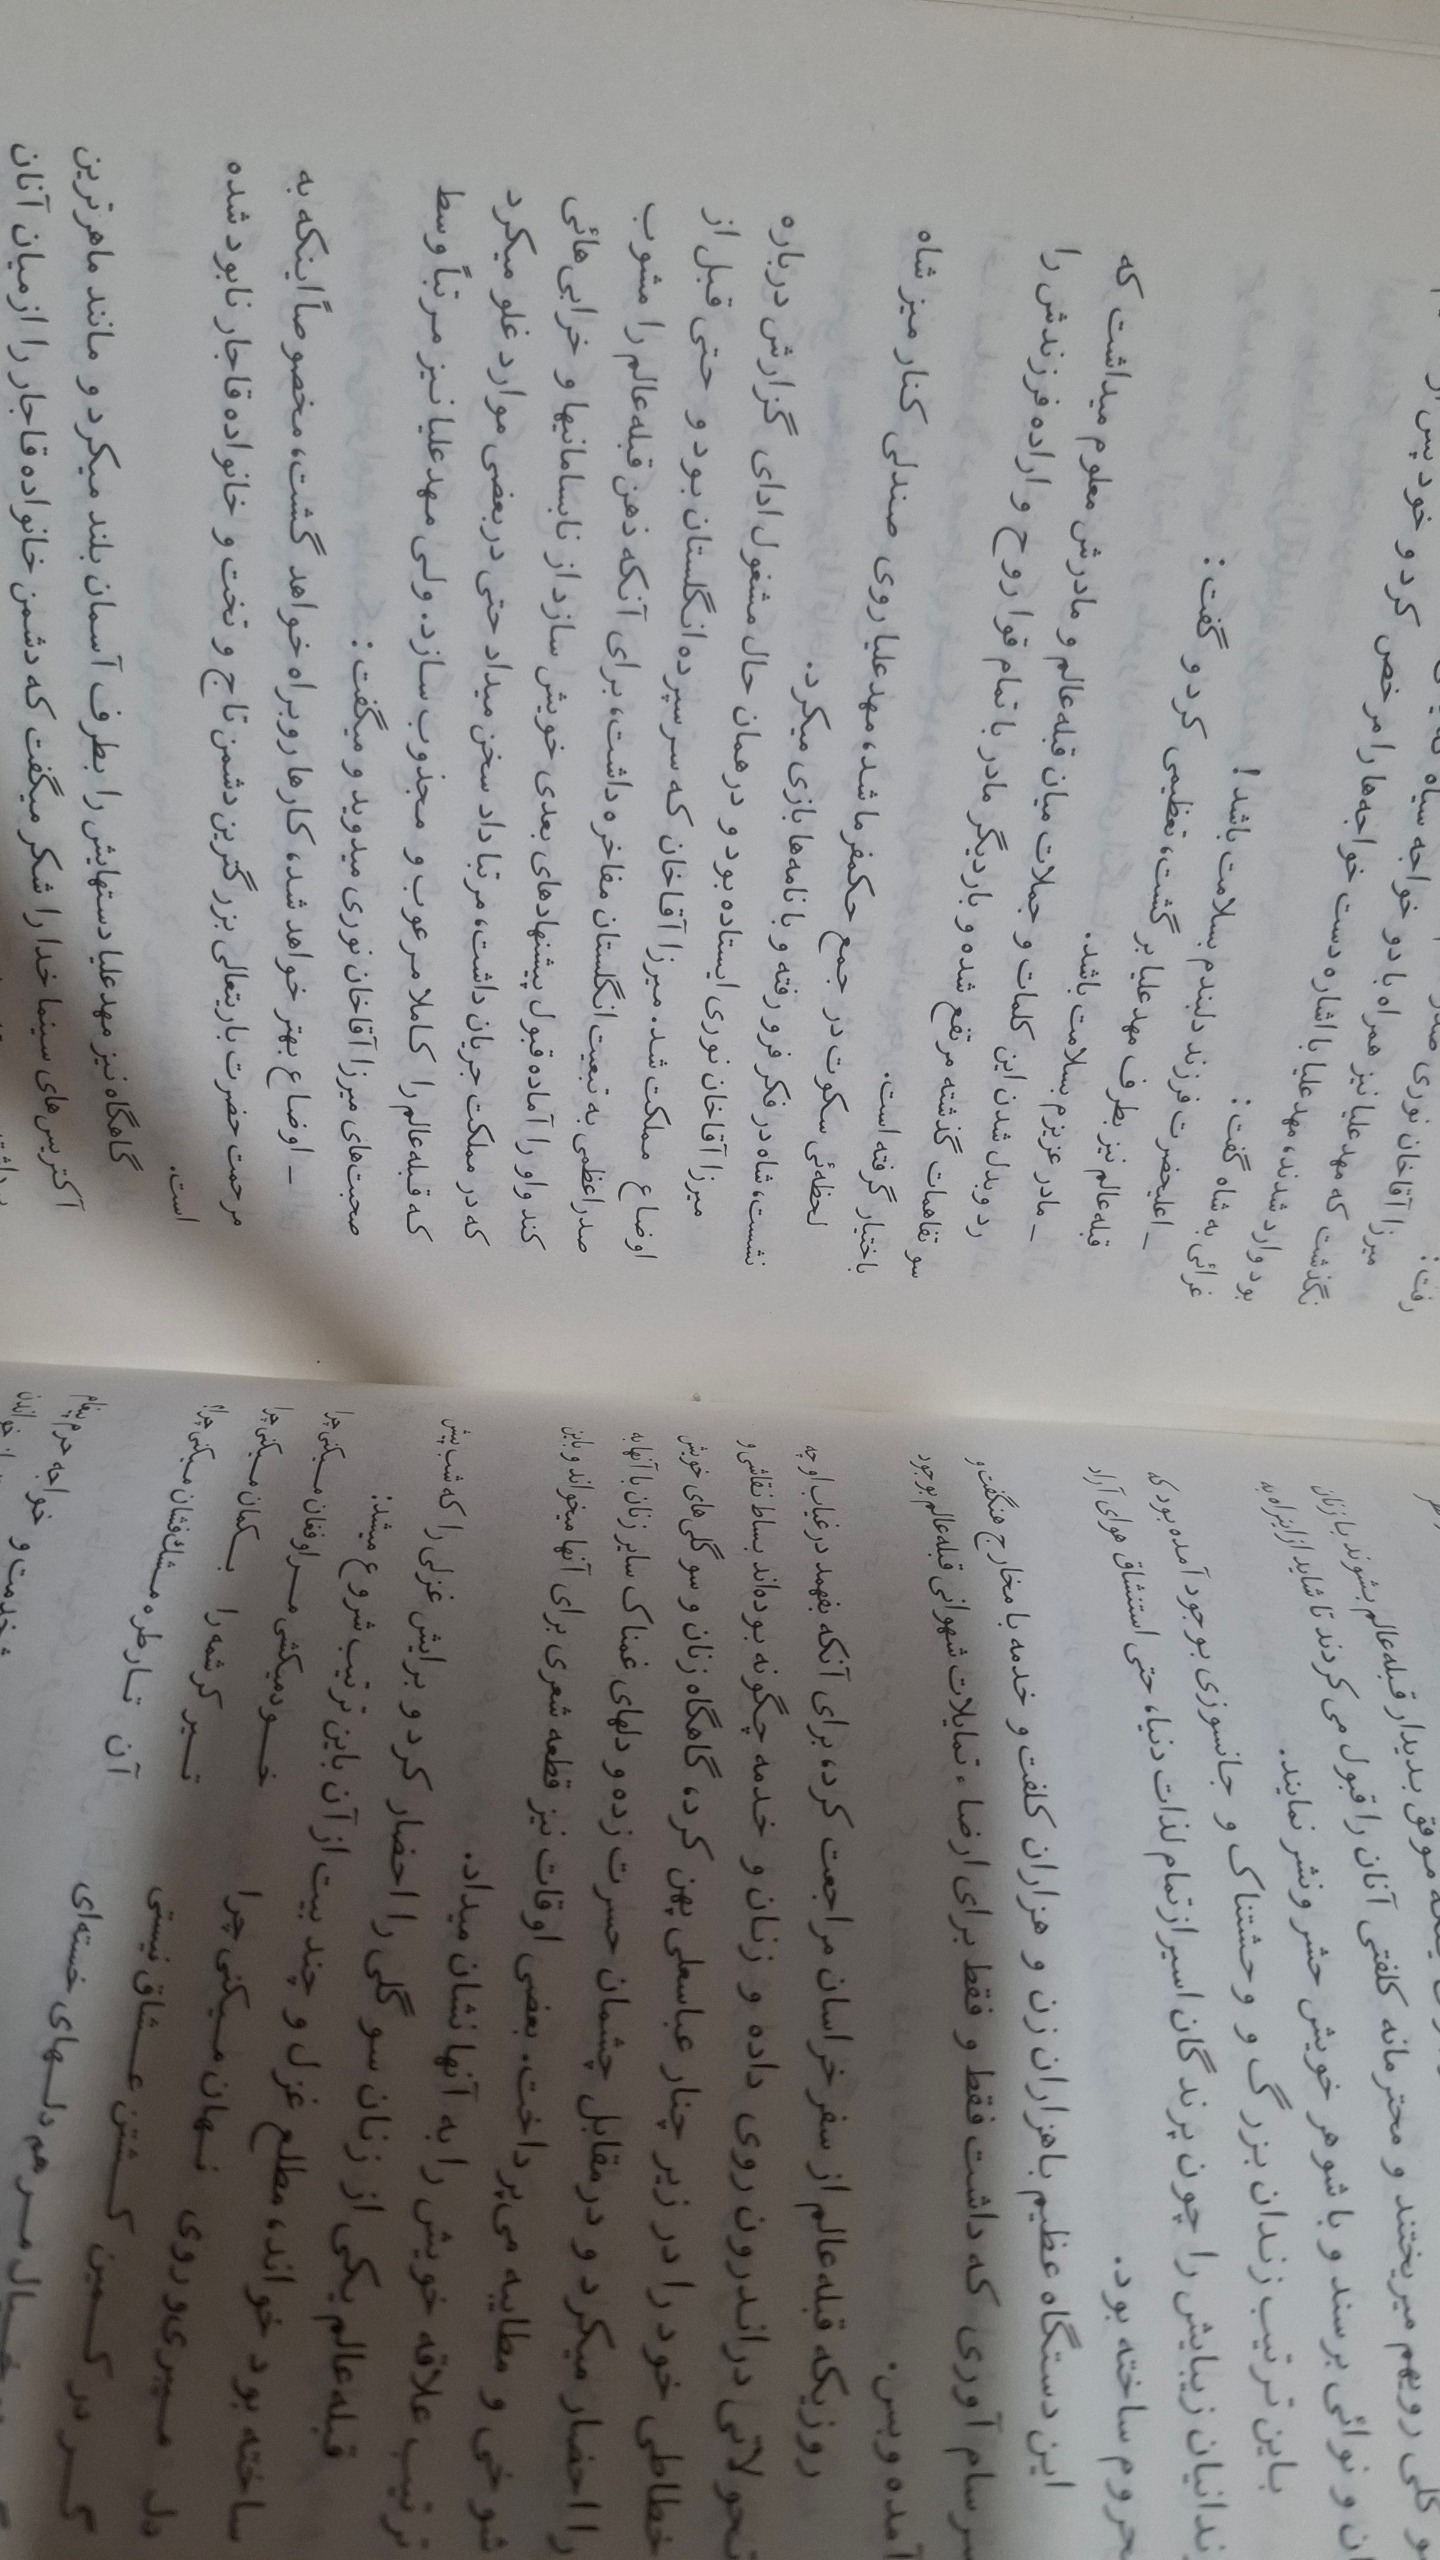 سو گلی رویهم میریختند و محترمانه کلفتی آنان را قبول می کردند تا شاید از اینراه به
ان و نوائی برسند و با شوهر خویش حشر و نشر نمایند.
باین ترتیب زندان بزرگ و وحشتناک و جانسوزی بوجود آمده بود که
ندانیان زیبایش را چون پرندگان اسیر از تمام لذات دنیا، حتی استنشاق هوای آزاد
محروم ساخته بود.
این دستگاه عظیم باهزاران زن و هزاران کلفت و خدمه با مخارج هنگفت و
سرسام آوری که داشت فقط و فقط برای ارضاء تمایلات شهوانی قبله عالم بوجود
آمده وبس.
روزیکه قبله عالم از سفر خراسان مراجعت کرد، برای آنکه بفهمد در غیاب او چه
تحولاتی در اندرون روی داده و زنان و خدمه چگونه بوده‌اند بساط نقاشی و
خطاطی خود را در زیر چنار عباسعلی پهن کرد، گاهگاه زنان و سوگلی های خویش
را احضار میکرد و در مقابل چشمان حسرت زده و دلهای غمناک سایر زنان با آنها به
شوخی و مطایبه می‌پرداخت. بعضی اوقات نیز قطعه شعری برای آنها میخواند و باین
ترتیب علاقه خویش را به آنها نشان میداد.
قبله عالم یکی از زنان سوگلی را احضار کرد و برایش غزلی را که شب پیش
ساخته بود خواند، مطلع غزل و چند بیت از آن باین ترتیب شروع میشد:
دل میبری و روی نهان میکنی چرا خود میکشی مرا و فغان میکنی چرا
گر در کمین کشتن عشاق نیستی تیر کرشمه را بکمان میکنی چرا
مرهم دلهای خسته‌ای آن تار طره مشک فشان میکنی چرا
خدمت و خواجه حرم پیغام
میرزا آقاخان نوری
رفت:
میرزا آقاخان نوری صدر
مرخص کرد و خود پس از
نگذشت که مهد علیا نیز همراه با دو خواجه سیاه
بود وارد شدند، مهد علیا با اشاره دست خواجه‌ها را مرخص کرد و
غرائی به شاه گفت:
ـ اعلیحضرت فرزند دلبندم بسلامت باشد!
قبله عالم نیز بطرف مهد علیا برگشت، تعظیمی کرد و گفت:
ـ مادر عزیزم بسلامت باشد.
رد و بدل شدن این کلمات و جملات میان قبله عالم و مادرش معلوم میداشت که
سوتفاهمات گذشته مرتفع شده و بار دیگر مادر با تمام قوا روح و اراده فرزندش را
باختیار گرفته است.
لحظه‌ئی سکوت در جمع حکمفرما شد، مهد علیا روی صندلی کنار میز شاه
نشست، شاه در فکر فرو رفته و با نامه‌ها بازی میکرد.
میرزا آقاخان نوری ایستاده بود و در همان حال مشغول ادای گزارش درباره
اوضاع مملکت شد. میرزا آقاخان که سرسپرده انگلستان بود و حتی قبل از
صدراعظمی به تبعیت انگلستان مفاخره داشت، برای آنکه ذهن قبله عالم را مشوب
کند و او را آماده قبول پیشنهادهای بعدی خویش سازد از نابسامانیها و خرابی هائی
که در مملکت جریان داشت، مرتبا داد سخن میداد حتی در بعضی موارد غلو میکرد
که قبله عالم را کاملا مرعوب و مجذوب سازد. ولی مهد علیا نیز مرتباً وسط
صحبت‌های میرزا آقاخان نوری میدوید و میگفت:
ـ اوضاع بهتر خواهد شد، کارها روبراه خواهد گشت، مخصوصاً اینکه به
مرحمت حضرت باریتعالی بزرگترین دشمن تاج و تخت و خانواده قاجار نابود شده
است.
گاهگاه نیز مهد علیا دستهایش را بطرف آسمان بلند میکرد و مانند ماهرترین
آکتریس‌های سینما خدا را شکر میگفت که دشمن خانواده قاجار را از میان آنان